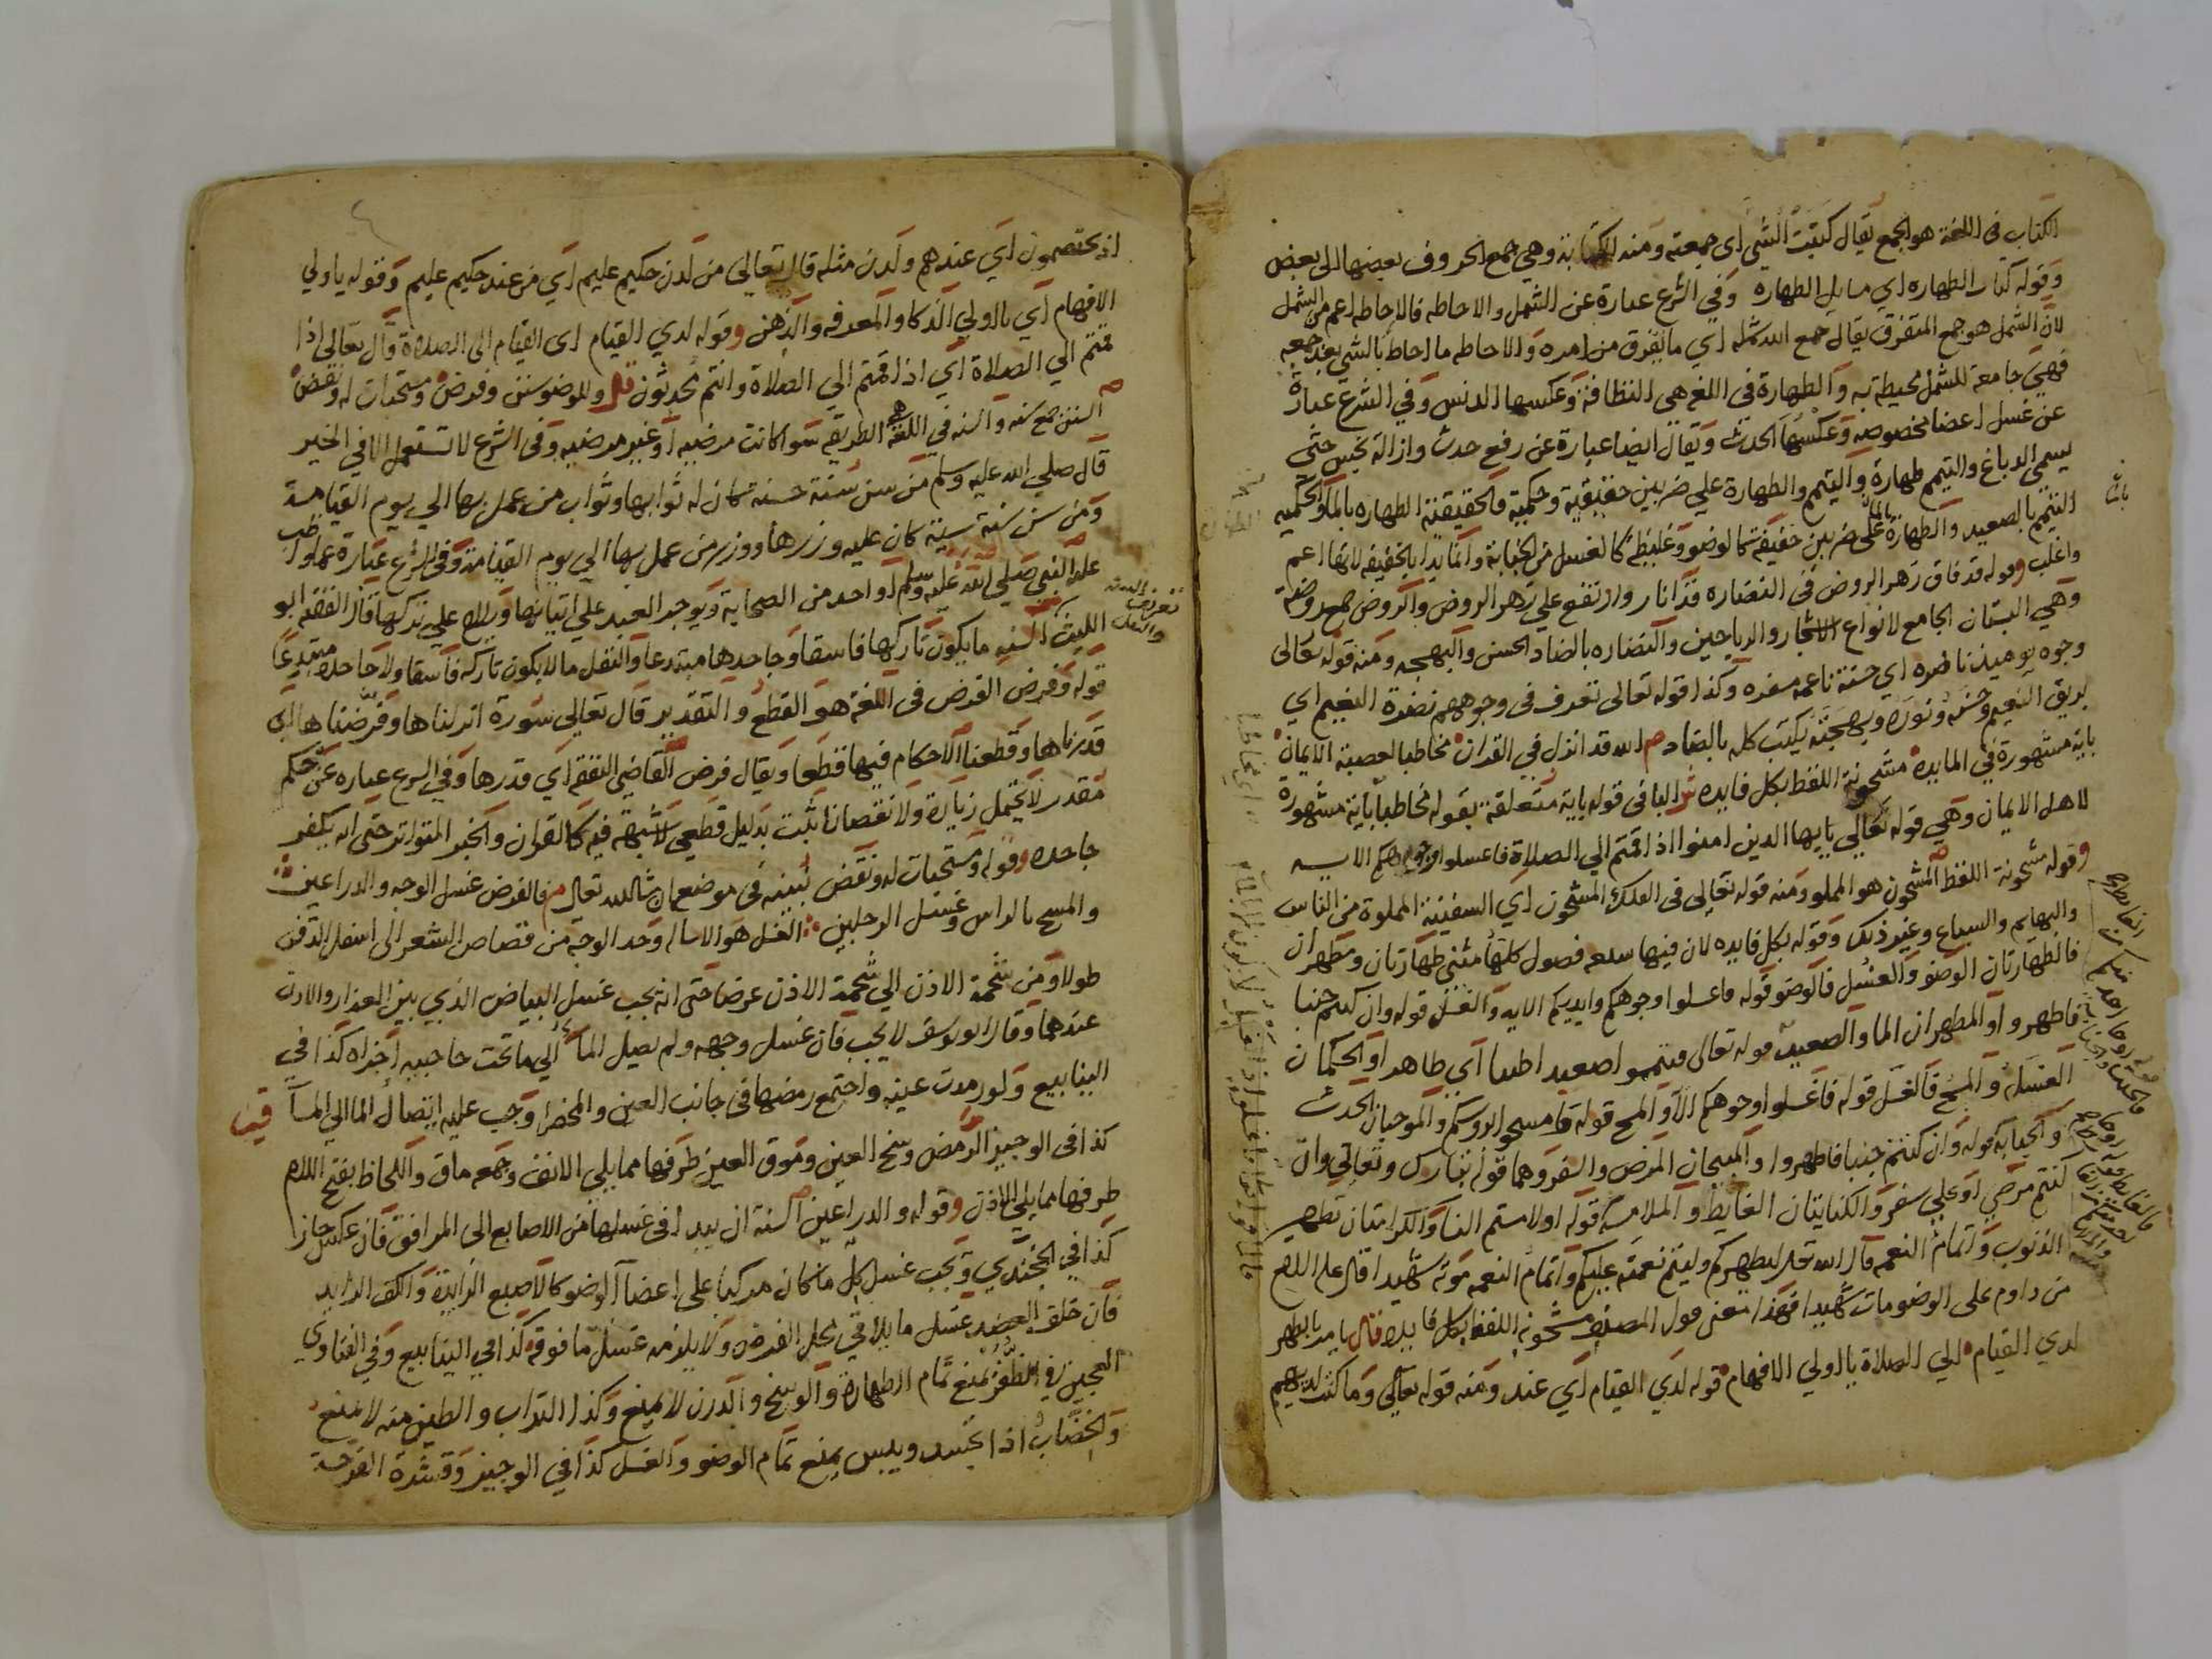 الكتاب في اللغة هو الجمع يقال كتبت الشي اي جمعته ومنه الكتابة وهي جمع الحروف بعضها الى بعض
وقوله كتاب الطهاره اي مسايل الطهاره وفي الشرع عبارة عن الشمل والاحاطه فالاحاطه اعم من الشمل
لان الشمل هو جمع المتفرق يقال جمع الله شمله اي ما تفرق من امره والاحاطه ما احاط بالشي بعد جمعه
فهي جامعة للشمل محيطة به والطهارة في اللغه هي النظافة وعكسها الدنس وفي الشرع عبارة
عن غسل اعضا مخصوصه وعكسها الحدث ويقال ايضا عبارة عن رفع حدث وازالة نجس حتى
يسمى الدباغ والتيمم طهارة والتيمم والطهارة على ضربين حقيقية وحكمية فالحقيقية الطهاره بالما والحكميه
التيمم بالصعيد والطهارة بالما على ضربين خفيفة كالوضو وغليظة كالغسل من الجنابة وانما بدا بالخفيفه لانها اعم
واغلب وقوله قد فاق زهر الروض في النضاره قد انار وارتفع على زهر الروض والروض جمع روضة
وهي البستان الجامع لانواع الاشجار والرياحين والنضاره بالضاد الحسن والبهجه ومنه قوله تعالى
وجوه يوميذ ناضره اي حسنة ناعمه مسفره وكذا قوله تعالى تعرف في وجوههم نضرة النعيم اي
بريق النعيم وحسنه ونوره وبهجته يكتب كله بالضاد م الله قد انزل في القران مخاطبا لعصبة الايمان
باية مشهورة في المايده مشحونة اللفظ بكل فايده ش البا في قوله باية متعلقة بقوله مخاطبا باية مشهورة
لاهل الايمان وهي قوله تعالي يايها الذين امنوا اذا قمتم الي الصلاة فاغسلوا وجوهكم الايه
وقوله مشحونة اللفظ المشحون هو المملو ومنه قوله تعالى في الفلك المشحون اي السفينة المملوة من الناس
والبهايم والسباع وغير ذلك وقوله بكل فايده لان فيها سبعه فصول كلها مثنى طهارتان ومطهران
فالطهارتان الوضو والغسل فالوضو قوله فاغسلوا وجوهكم وايديكم الايه والغسل قوله وان كنتم جنبا
فاطهروا والمطهران الما والصعيد قوله تعالى فتيمموا صعيدا طيبا اي طاهرا والحكمان
الغسل والمسح فالغسل قوله فاغسلوا وجوهكم الا والمسح قوله فامسحوا بروسكم والموجبان الحدث
والجنابة قوله وان كنتم جنبا فاطهروا والمبيحان المرض والسفر وهما قوله تبارك وتعالي وان
كنتم مرضى او على سفر والكنايتان الغايط والملامسة قوله او لامستم النسا والكرامتان تطهير
الذنوب واتمام النعمه قال الله تعالى ليطهركم وليتم نعمته عليكم واتمام النعمه موته شهيدا قال عليه السلام
من داوم على الوضو مات شهيدا فهذا معنى قول المصنف مشحونة اللفظ بكل فايده قال يامر بالطهر
لدي القيام الي الصلاة يا اولي الافهام قوله لدي القيام اي عند ومنه قوله تعالى وما كنت لديهم
باية
اذ يختصمون اي عندهم ولدن مثله قال تعالي من لدن حكيم عليم اي من عند حكيم عليم وقوله يا ولي
الافهام اي يا اولي الذكا والمعرفه والذهن وقوله لدي القيام اي القيام الى الصلاة قال تعالى اذا
قمتم الي الصلاة اي اذا قمتم الي الصلاة وانتم محدثون وللوضو سنن وفرض ومستحبات له ونقض
السنن جمع سنه والسنه في اللغة هي الطريقه سوا كانت مرضيه او غير مرضيه وفي الشرع لا تستعمل الا في الخير
قال صلي الله عليه وسلم من سن سنة حسنة كان له ثوابها وثواب من عمل بها الي يوم القيامة
ومن سن سنة سيئة كان عليه وزرها ووزر من عمل بها الي يوم القيامة وفي الشرع عبارة عما واظب
عليه النبي صلى الله عليه وسلم او احد من الصحابة ويوجر العبد على اتيانها ويلام على تركها قال الفقيه ابو
الليث السنه ما يكون تاركها فاسقا وجاحدها مبتدعا والنفل ما لا يكون تاركه فاسقا ولا جاحده مبتدعا
قوله وفرض الفرض في اللغة هو القطع والتقدير قال تعالي سورة انزلناها وفرضناها اي
قدرناها وقطعنا الاحكام فيها قطعا ويقال فرض القاضي النفقه اي قدرها وفي الشرع عباره عن حكم
مقدر لا يحتمل زيادة ولا نقصانا ثبت بدليل قطعي لا شبهة فيه كالقران والخبر المتواتر حتى انه يكفر
جاحده وقوله ومستحبات له ونقض نبينه في موضعه ان شا الله تعالى م فالفرض غسل الوجه والذراعين
والمسح بالراس وغسل الرجلين ش الغسل هو الاساله وحد الوجه من قصاص الشعر الى اسفل الذقن
طولا ومن شحمة الاذن الي شحمة الاذن عرضا حتى انه يجب غسل البياض الذي بين العذار والاذن
عندهما وقال ابو يوسف لا يجب فان غسل وجهه ولم يصل الما الي ما تحت حاجبيه اجزاه كذا في
الينابيع ولو رمدت عينه واجتمع رمضها في جانب العين والمحضر وجب عليه ايصال الما الي الماق
كذا في الوجيز الرمض وسخ العين وموق العين طرفها مما يلي الانف وجمعه ماق واللحاظ بفتح اللام
طرفها مما يلي الاذن وقوله والذراعين السنة ان يبدا في غسلها من الاصابع الى المرافق فان عكس جاز
كذا في الخجندي ويجب غسل كل ما كان مركبا على اعضا الوضو كالاصبع الزايدة والكف الزايد
فان خلق العضد غسل ما يلاقي محل الفرض ولا يلزمه غسل ما فوقه كذا في الينابيع وفي الفتاوي
العجين في الظفر يمنع تمام الطهارة والوسخ والدرن لا يمنع وكذا التراب والطين منه لا يمنع
والخضاب اذا تجسد ويبس يمنع تمام الوضو والغسل كذا في الوجيز وقشرة القرحة